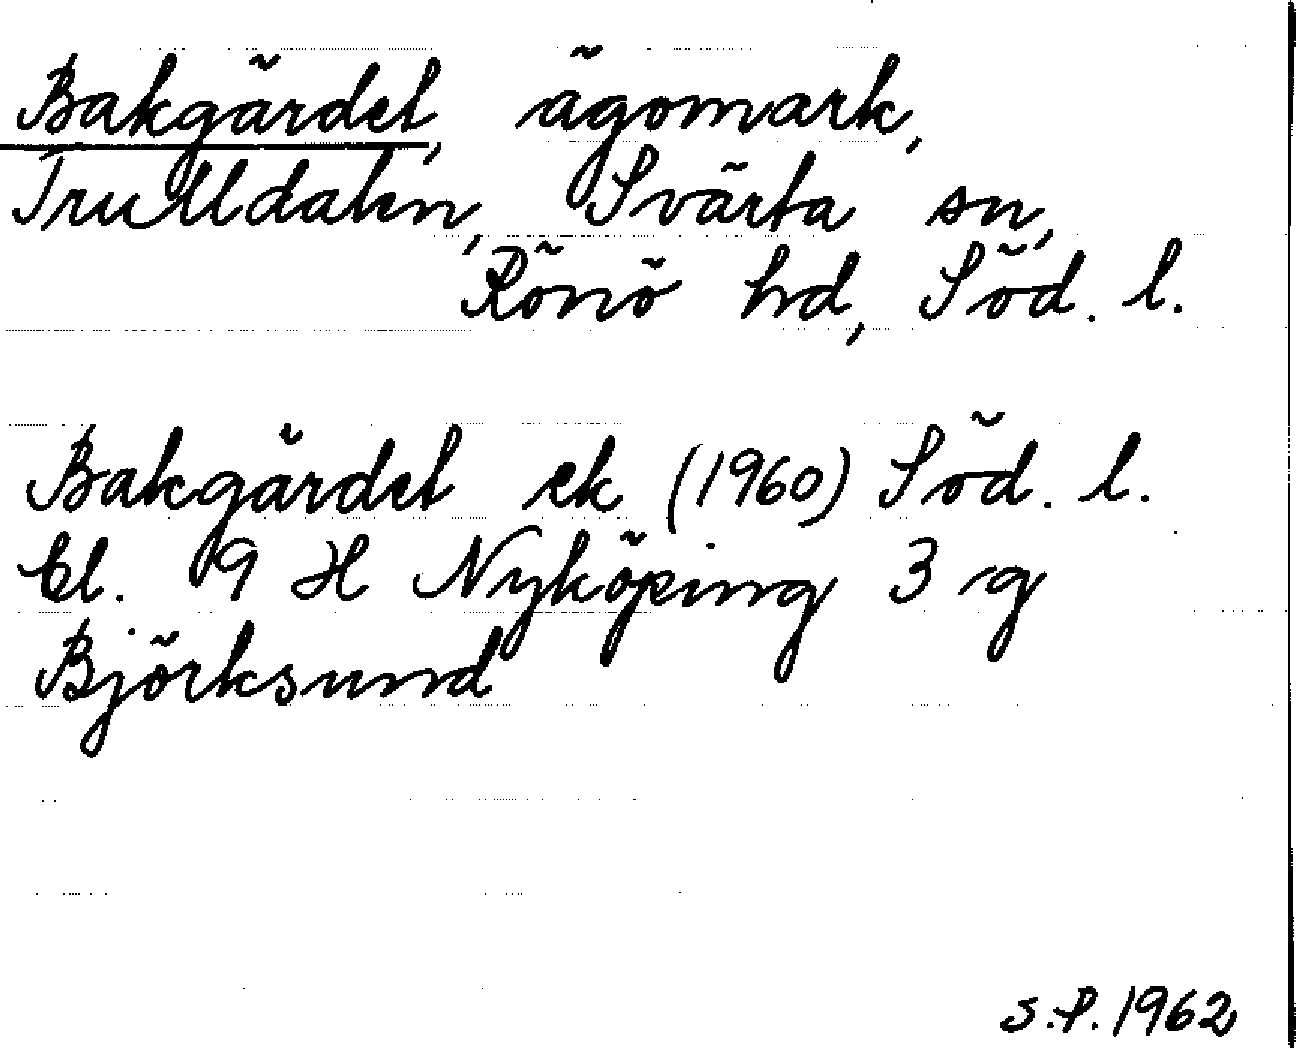 Bakgärdet, ägomark,
Trulldalen, Svärta sn,
Rönö hd, Söd. l.
Bakgärdet ek (1960) Söd. l.
bl. 9 H Nyköping 3 g
Björksund
S.P. 1962